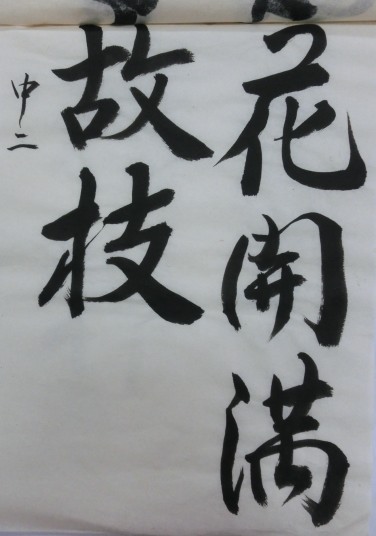 花開満
故枝
中二